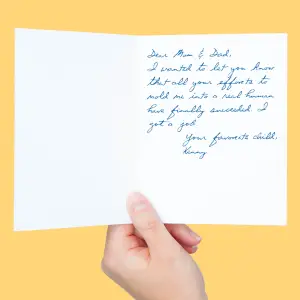 Dear Mum & Dad,
I wanted to let you know
that all your efforts to
mold me into a real human
have finally succeeded. I
got a job.
Your favorite child,
Kenny